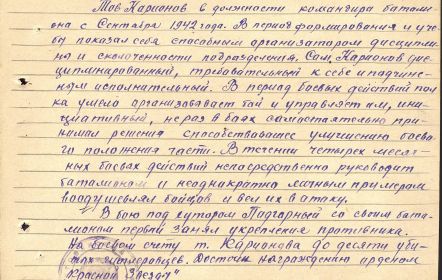 Тов Карионов в должности командира батали
она с Сентября 1942 года. В период формирования и уче
бы показал себя способным организатором дисципли
ны и сколоченности подразделения. Сам, Карионов дис
циплинированный, требовательный к себе и подчине
ным исполнительный. В период боевых действий пол
ка умело организовавает бой и управляет им, ини
циативный, не раз в боях самостоятельно при
нимал решения способствовавшее улучшению боево
го положения части. В течении четырех месяч
ных боевах действий непосредственно руководит
батальоном и неоднакратно личным примером
воодушевлял бойцов и вел их в атаку.
В бою под хутором Подгорный со своим бата
лионам первый занял укрепления противника.
На боевом счету т. Карионова до десяти уби
тых гитлеровцев. Достоин награждению орденом
Красной Звезды"